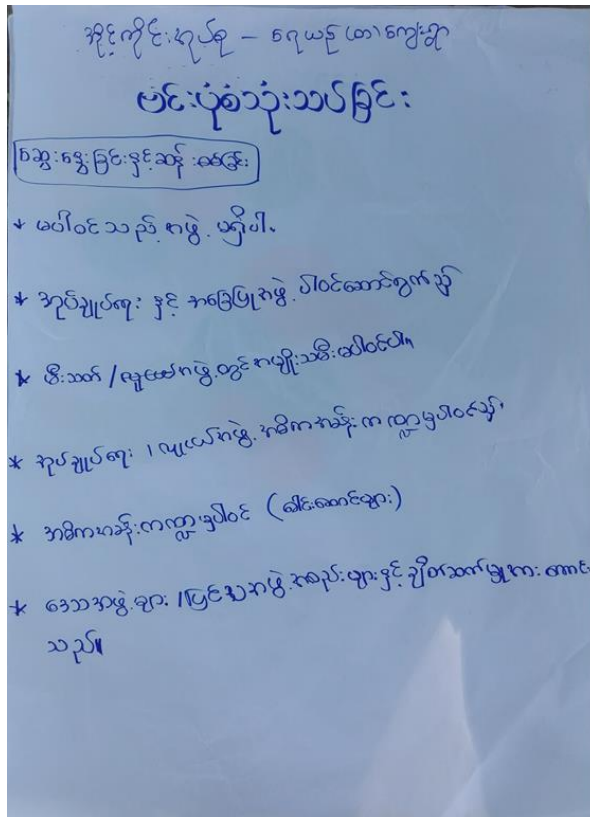 အိုင့်ကိုင်းအုပ်စု – ရေယဉ် (ထ) ကျေးရွာ
ဗင်းပုံစံသုံးသပ်ခြင်း
ဆွေးနွေးခြင်းနှင့်ဆန်းစစ်ခြင်း
* မပါဝင်သည့် အဖွဲ့ မရှိပါ။
* အုပ်ချုပ်ရေး နှင့် အခြေပြုအဖွဲ့ ပါဝင်ဆောင်ရွက်သည်
* မီးသတ် / လူငယ်အဖွဲ့တွင် အမျိုးသမီး မပါဝင်ပါ။
* အုပ်ချုပ်ရေး / လူငယ်အဖွဲ့ အဓိကအခန်းကဏ္ဍမှပါဝင်သည်။
* အဓိကအခန်းကဏ္ဍမှပါဝင် (ခေါင်းဆောင်များ)
* ဒေသအဖွဲ့များ / ပြင်ပအဖွဲ့အစည်းများနှင့်ချိတ်ဆက်မှုအားကောင်း
သည်။